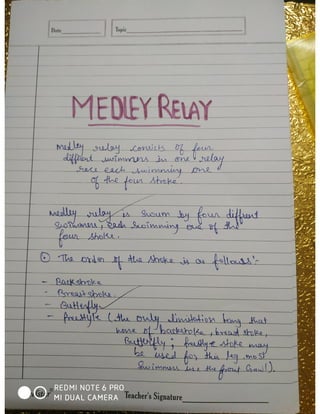 Date
Topic
MEDLEY RELAY
Medley relay consists of four
different swimmers in one relay
race each swimming one
of the four stroke.
Medley relay is swum by four diffrent
swimmers, each swimming one of the
four stroke.
The order of the stroke is as follows:-
- Backstroke
- Breaststroke
- Butterfly
- freestyle (the only limitation being that
none of backstroke, breast stoke,
Butterfly; freestyle stoke may
be used for this leg most
swimmers use the front Crawl).
Teacher's Signature
REDMI NOTE 6 PRO
MI DUAL CAMERA